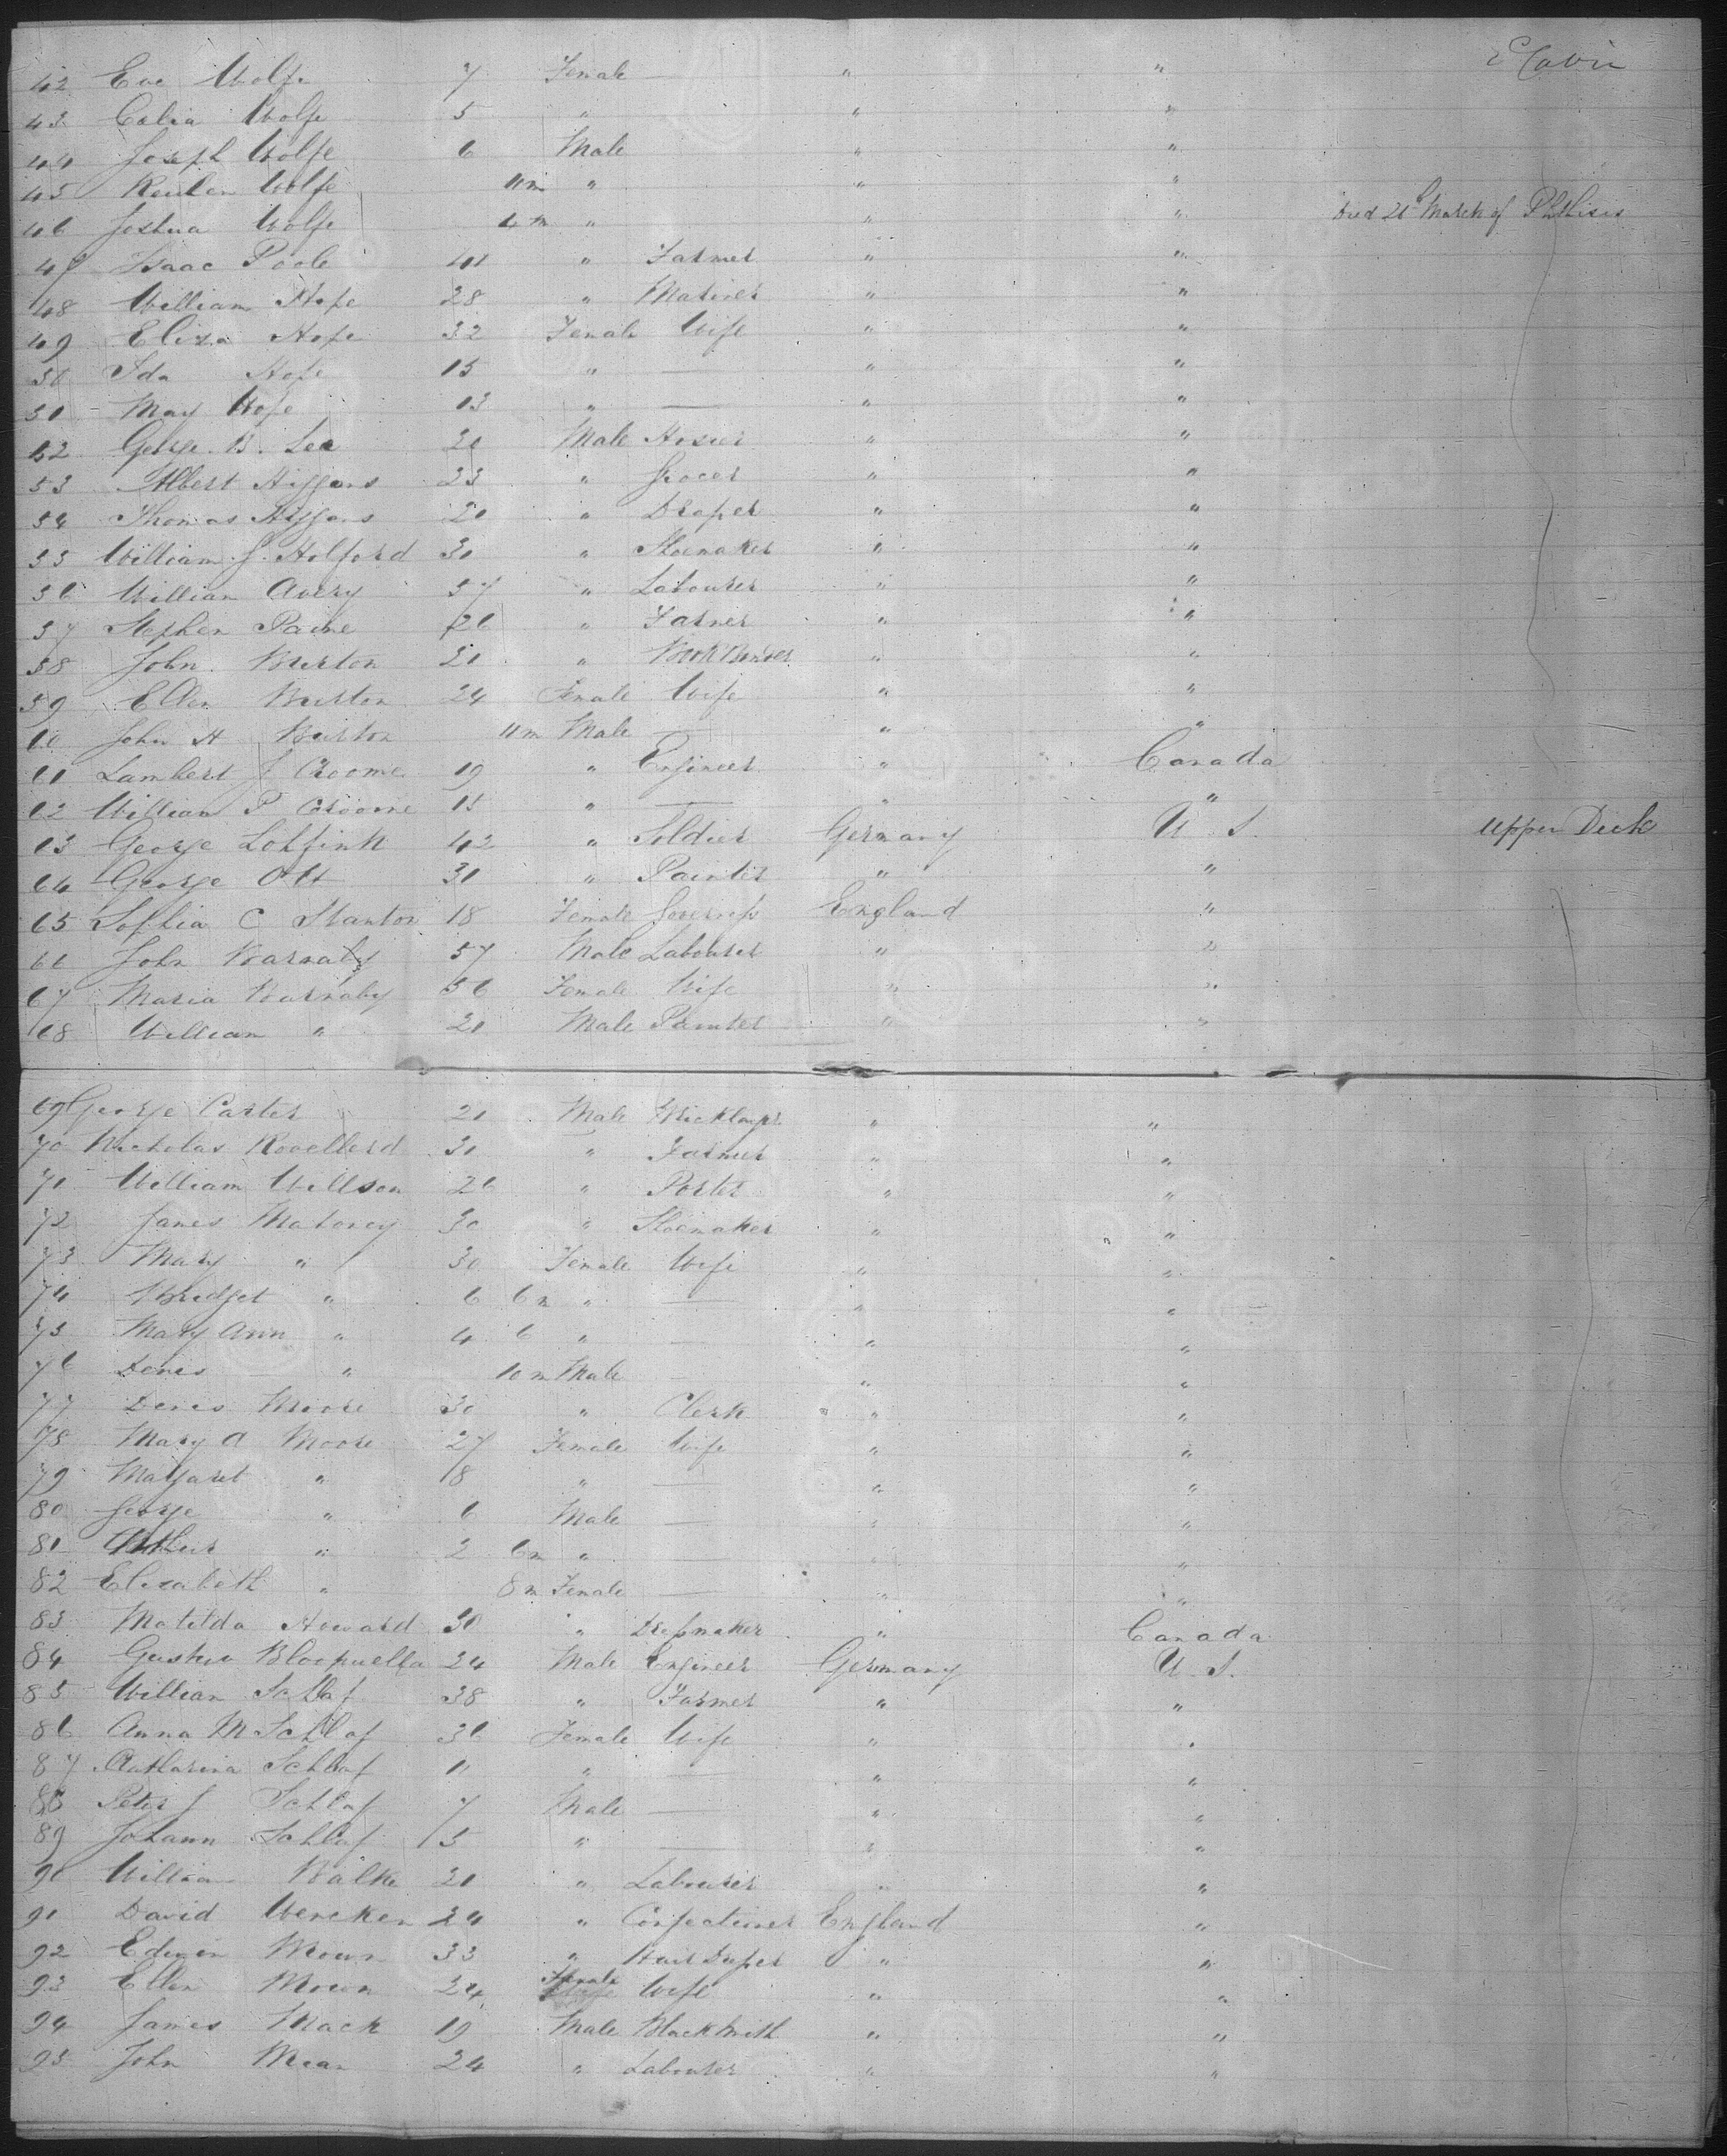 42 Eve Wolfe 7 Female — " " 2 Cabin
43 Celia Wolfe 5 " " "
44 Joseph Wolfe 6 Male " "
45 Reuben Wolfe 11m " " "
46 Joshua Wolfe 4m " " " Died 21st March of Phthisis
47 Isaac Poole 41 " Farmer " "
48 William Hope 28 " Mariner " "
49 Eliza Hope 32 Female Wife " "
50 Ida Hope 15 " — " "
51 May Hope 13 " — " "
52 George B. Lee 20 Male Hosier " "
53 Albert Higgans 23 " Grocer " "
54 Thomas Higgans 20 " Draper " "
55 William J. Holford 30 " Shoemaker " "
56 William Avery 57 " Labourer " "
57 Stephen Paine 26 " Farmer " "
58 John Burton 20 " BookBinder " "
59 Ellen Burton 24 Female Wife " "
60 John H Burton 11m Male — " "
61 Lambert J Croome 19 " Engineer " Canada
62 William P Croome 15 " — " "
63 George Lohfink 42 " Soldier Germany U. S. Upper Deck
64 George Ott 30 " Painter " "
65 Sophia C Stanton 18 Female Governess England "
66 John Barnaby 57 Male Labourer " "
67 Maria Barnaby 56 Female Wife " "
68 William " 20 Male Painter " "
69 George Carter 20 Male Bricklayer " "
70 Nicholas 30 " Farmer " "
71 William Willson 26 " Porter " "
72 James Mahoney 30 " Shoemaker " "
73 Mary " 30 Female Wife " "
74 Bridget " 6 6m " — " "
75 Mary Ann " 4 6 " — " "
76 Denis " 10m Male — " "
77 Denis Moore 30 " Clerk " "
78 Mary A Moore 27 Female Wife " "
79 Margaret " 18 " — " "
80 George " 6 Male — " "
81 Arthur " 2 6m " — " "
82 Elizabeth " 8m Female — " "
83 Matilda Howard 30 " Dressmaker " Canada
84 Gustav 24 Male Engineer Germany U. S.
85 William Schlaf 38 " Farmer " "
86 Anna M Schlaf 36 Female Wife " "
87 Catharina Schlaf 11 " — " "
88 Peter J Schlaf 7 Male — " "
89 Johann Schlaf 5 " — " "
90 William Balke 20 " Labourer " "
91 David Wencken 24 " Confectioner England "
92 Edwin Mown 33 " " "
93 Ellen Mown 24 Female Wife " "
94 James Mack 19 Male BlackSmith " "
95 John 24 " Labourer " "